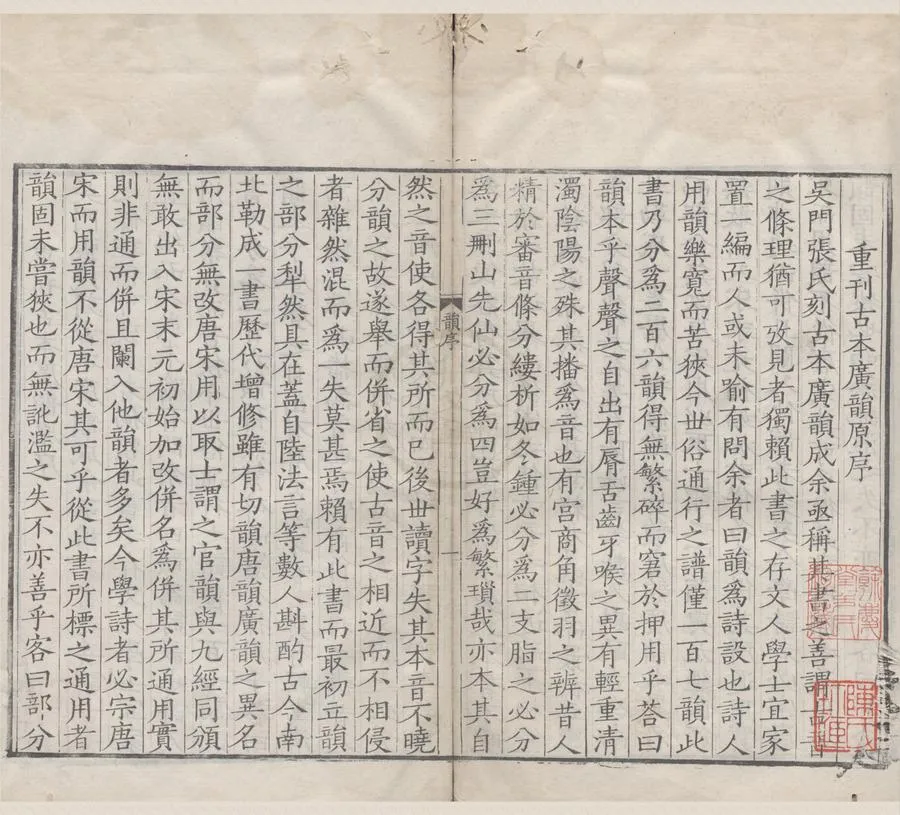 重刊古本廣韻原序
吳門張氏刻古本廣韻成余亟稱其書之善謂古音
之條理猶可攷見者獨賴此書之存文人學士宜家
置一編而人或未喻有問余者曰韻爲詩設也詩人
用韻樂寬而苦狹今世俗通行之譜僅一百七韻此
書乃分爲二百六韻得無繁碎而窘於押用乎荅曰
韻本乎聲聲之自出有脣舌齒牙喉之異有輕重清
濁陰陽之殊其播爲音也有宫商角徵羽之辨昔人
精於審音條分縷析如冬鍾必分爲二支脂之必分
爲三刪山先仙必分爲四豈好爲繁瑣哉亦本其自
韻序
一
然之音使各得其所而已後世讀字失其本音不曉
分韻之故遂舉而併省之使古音之相近而不相侵
者雜然混而爲一失莫甚焉賴有此書而最初立韻
之部分犁然具在蓋自陸法言等數人斟酌古今南
北勒成一書歷代增修雖有切韻唐韻廣韻之異名
而部分無改唐宋用以取士謂之官韻與九經同頒
無敢出入宋末元初始加改併名爲併其所通用實
則非通而併且闌入他韻者多矣今學詩者必宗唐
宋而用韻不從唐宋其可乎從此書所標之通用者
韻固未嘗狹也而無訛濫之失不亦善乎客曰部分